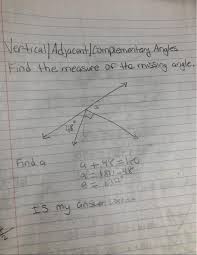 Vertical/Adjacent/Complementary Angles
Find the measure of the missing angle.
a
48°
Find a
a + 48 = 180
a = 180 - 48
a = 132°
Is my answer